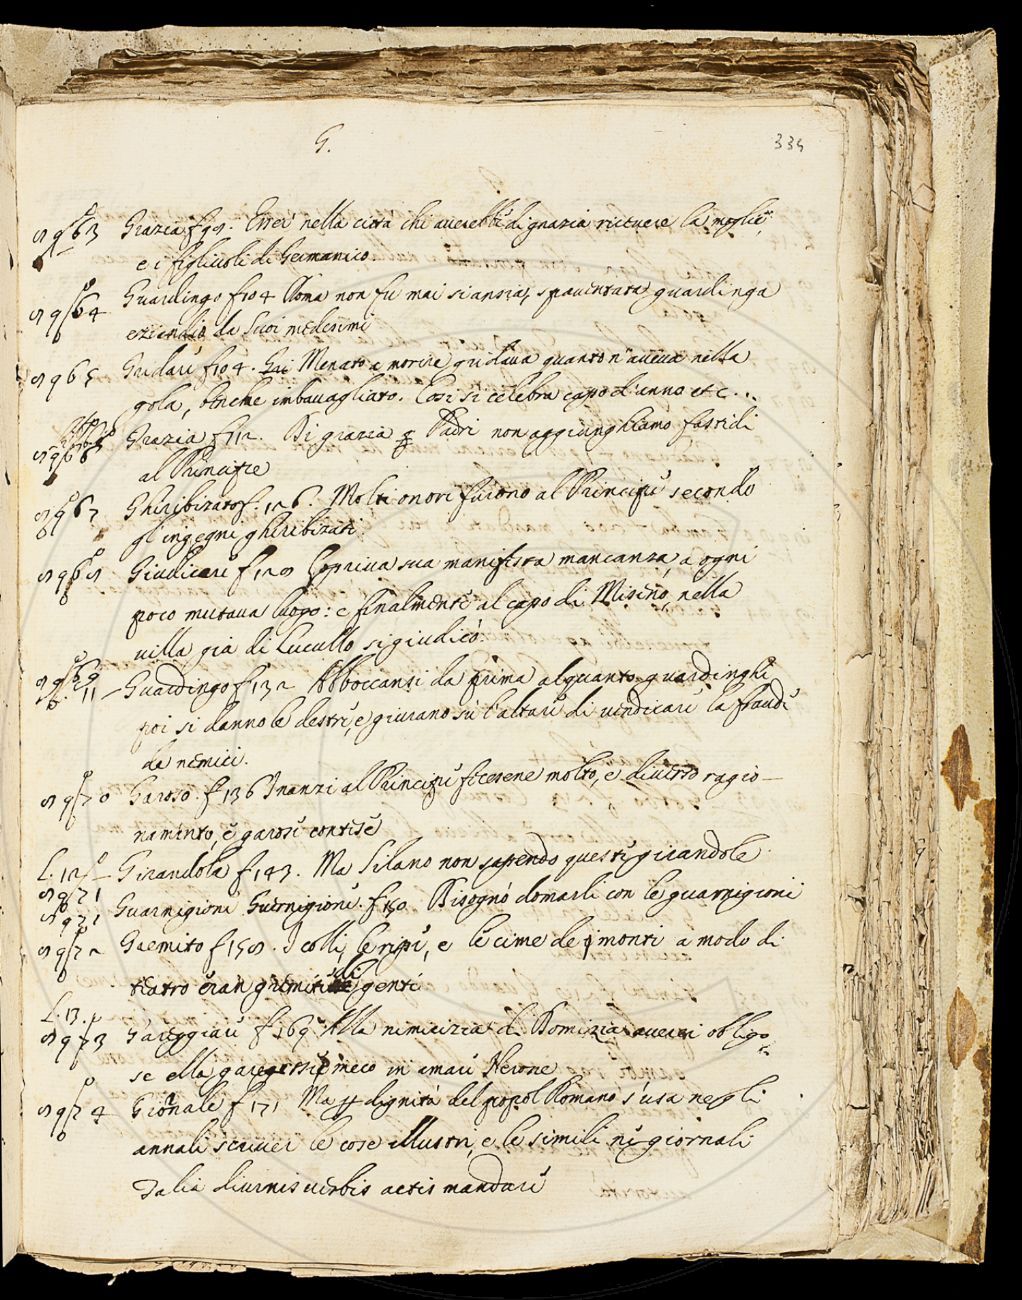 G.
335
Grazia f 99. Eravi nella città chi averebbe di grazia ricevere la moglie,
e i figliuoli di Germanico
Guardingo f 104 Roma non fù mai si ansia, spaventata, guardinga
eziandio da suoi medesimi
Gridare f 104. Menato a morire gridava quanto n'aveva nella
gola, benche imbavagliato. Cosi si celebra capo d'anno etc...
Grazia f 12. Di grazia Padri non aggiunghiamo fastidi
al Principe
Ghiribizato f. 126. Molti onori furono al Principe secondo
gl'ingegni ghiribizati
Giudicare f 129 Copriva sua manifesta mancanza, a ogni
poco mutava luogo: e finalmente al capo di Miseno, nella
villa già di Lucullo si giudicò.
L. 11 Guardingo f 132 Abboccansi da prima alquanto guardinghi
poi si danno le destre, e giurano sù l'altare di vendicare la fraude
de nemici.
Garoso. f 136 Inanzi al Principe fecesene molto, e diverso ragio-
namento, e garose contese
L. 12 Girandola f 143. Ma Silano non sapendo queste girandole
Guarnigione f. 150 Bisognò domarli con le guarnigioni
Gremito f 159. I colli, le ripe, e le cime de monti a modo di
teatro eran gremite di genti
L. 13.
Gareggiare f 169 Alla nimicizia di Domizia averei obligo,
se ella gareggasse meco in amare Nerone
Giornale f 171 Ma dignità del popol Romano s'usa negli
annali scriver le cose illustri, e le simili ne giornali
Talia diurnis urbis actis mandare